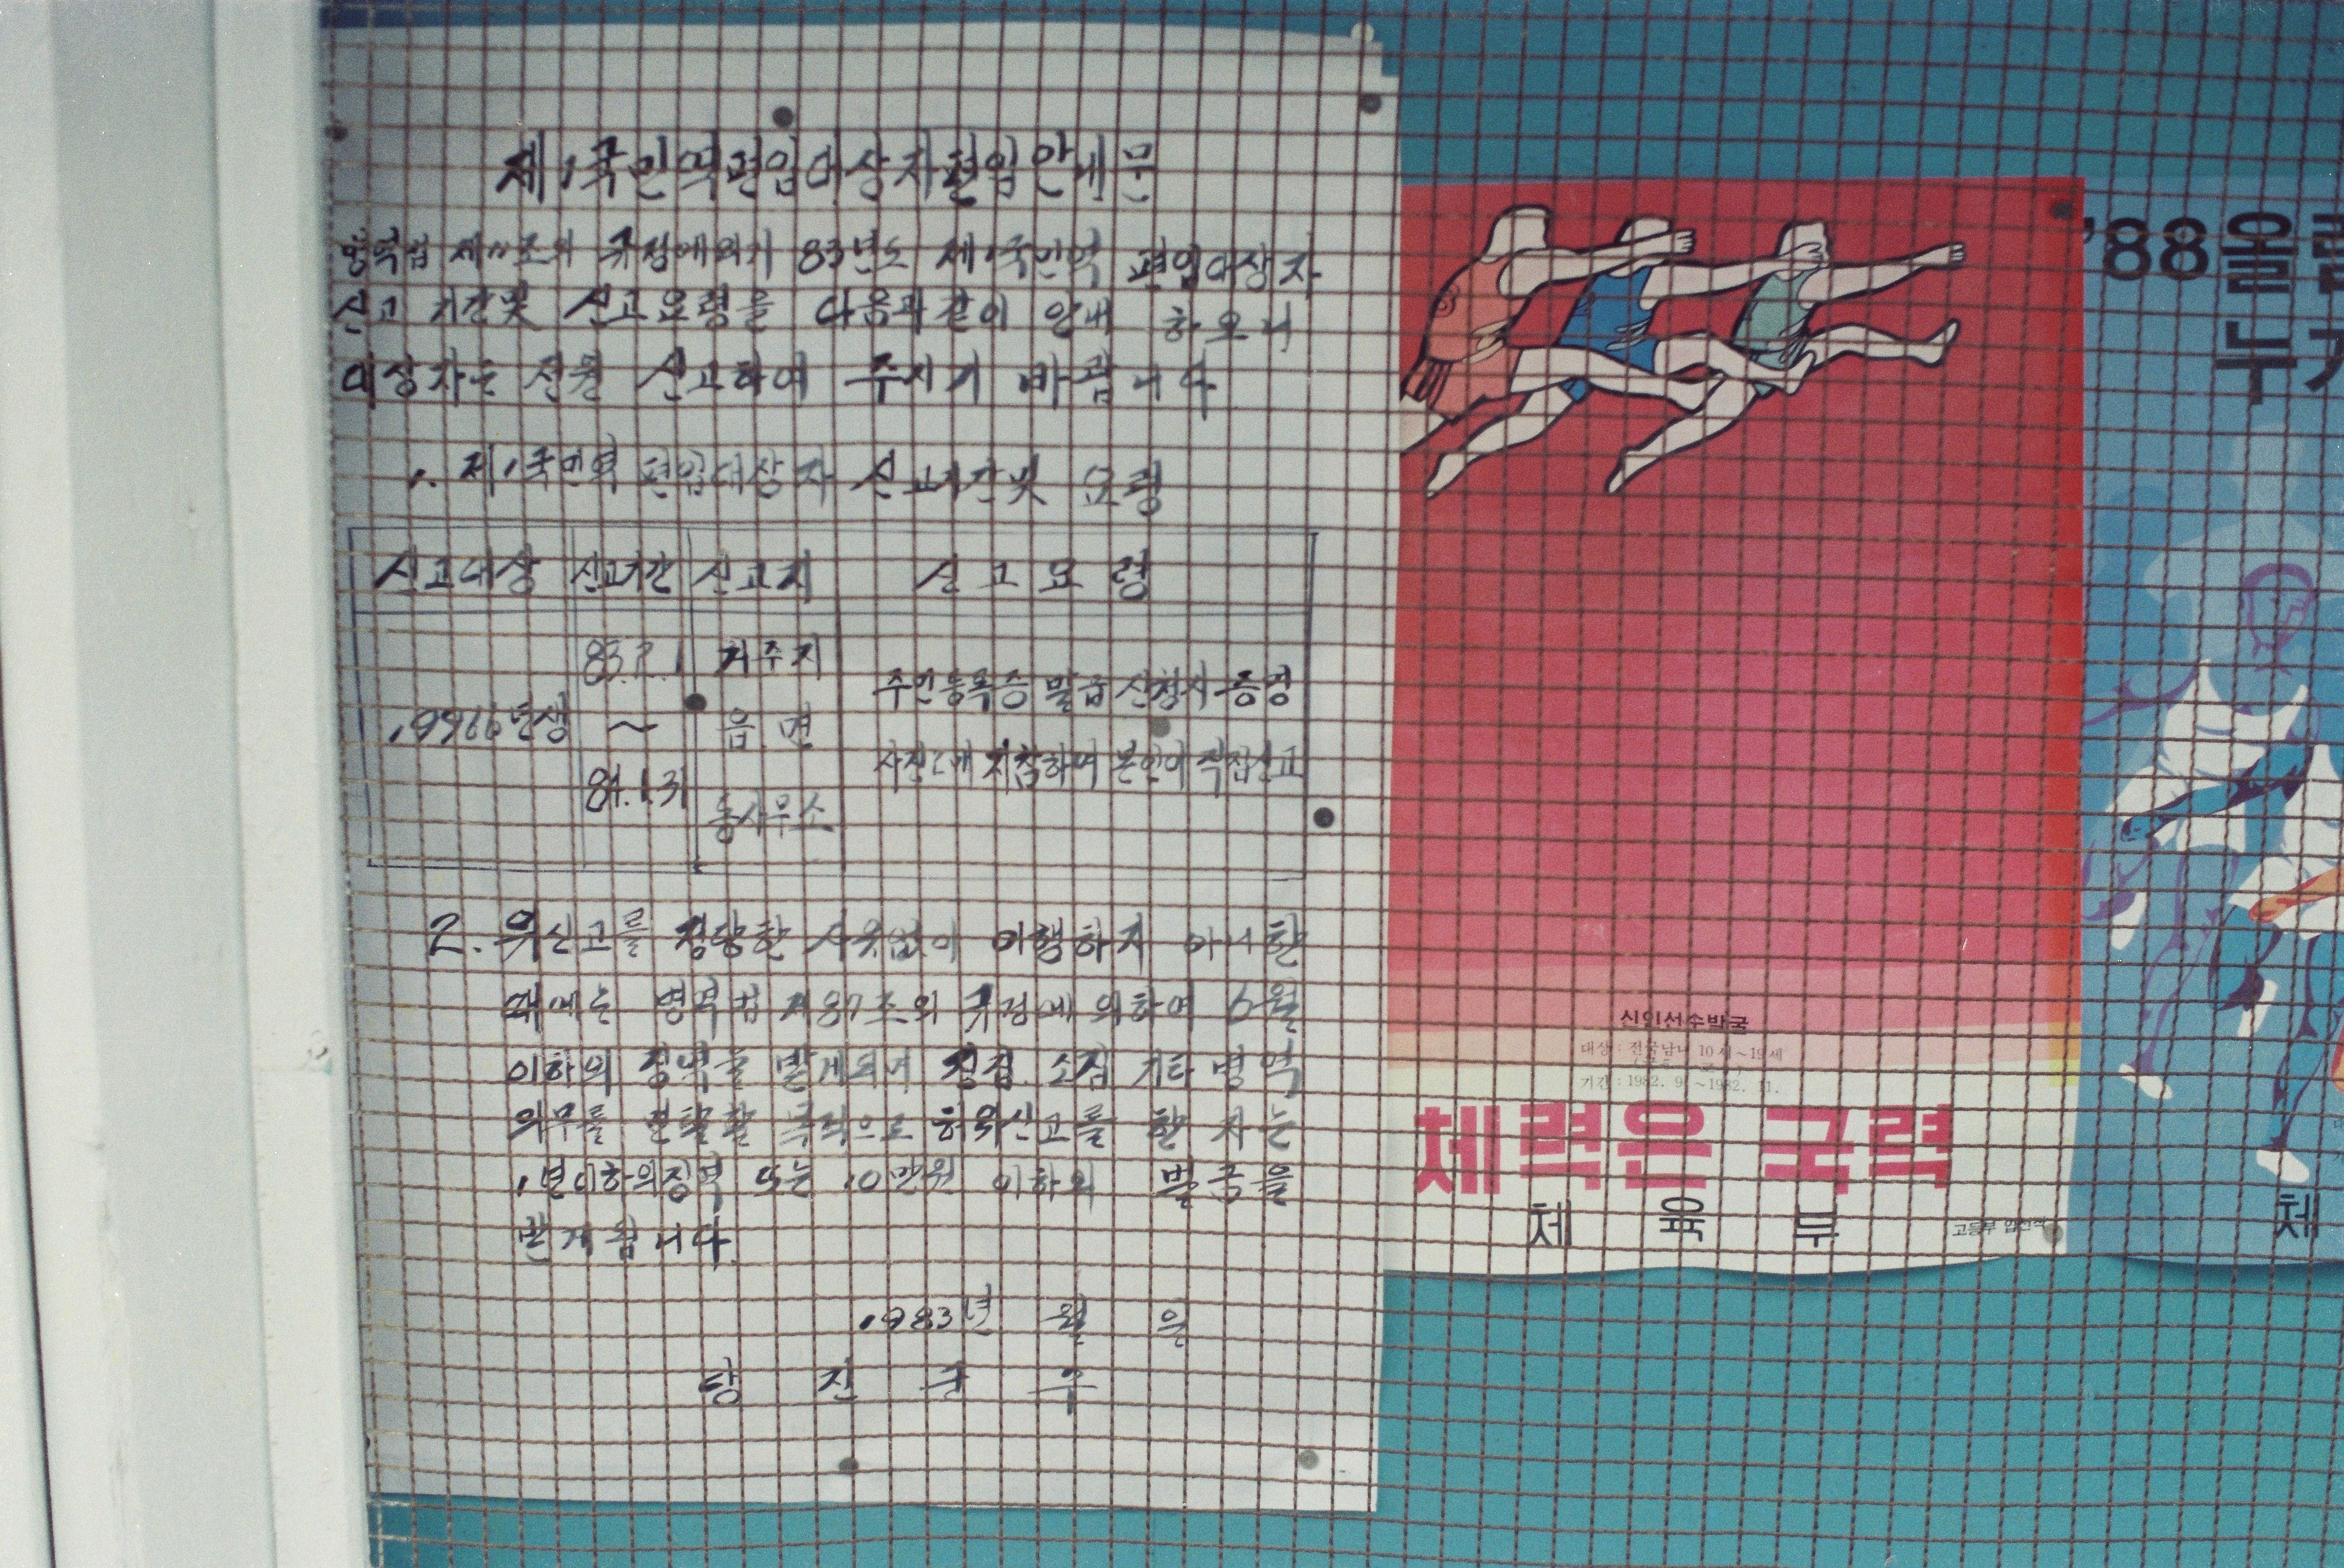 제1국민역편입대상자편입안내문
병역법 제11조의 규정에의거 83년도 제1국민역 편입대상자
신고 기간및 신고요령을 다음과같이 안내 하오니
대상자는 신고하여 주시기 바랍니다
1. 제1국민역 편입대상자 신고기간및 요령
신고대상 신고기간 신고지 신고요령
83.2.1 거주지
주민등록증 발급 신청시 증명
년생 ~ 읍면
사진2매 지참하여 본인이 직접신고
84.1.31
동사무소
2. 위신고를 정당한 사유없이 이행하지 아니한
때에는 병역법 제87조의 규정에 의하여 6월
이하의 징역을 받게되며 징집 소집 기타 병역
의무를 면탈할 목적으로 허위신고를 한 자는
1년이하의징역 또는 10만원 이하의 벌금을
받게됩니다
1983년 월 일
당진군수
신인선수발굴
대상 : 전국남녀 10세~19세
기간 : 1982. 9. ~1982. 11.
체력은 국력
체육부
고등부
'88올림
누가
체